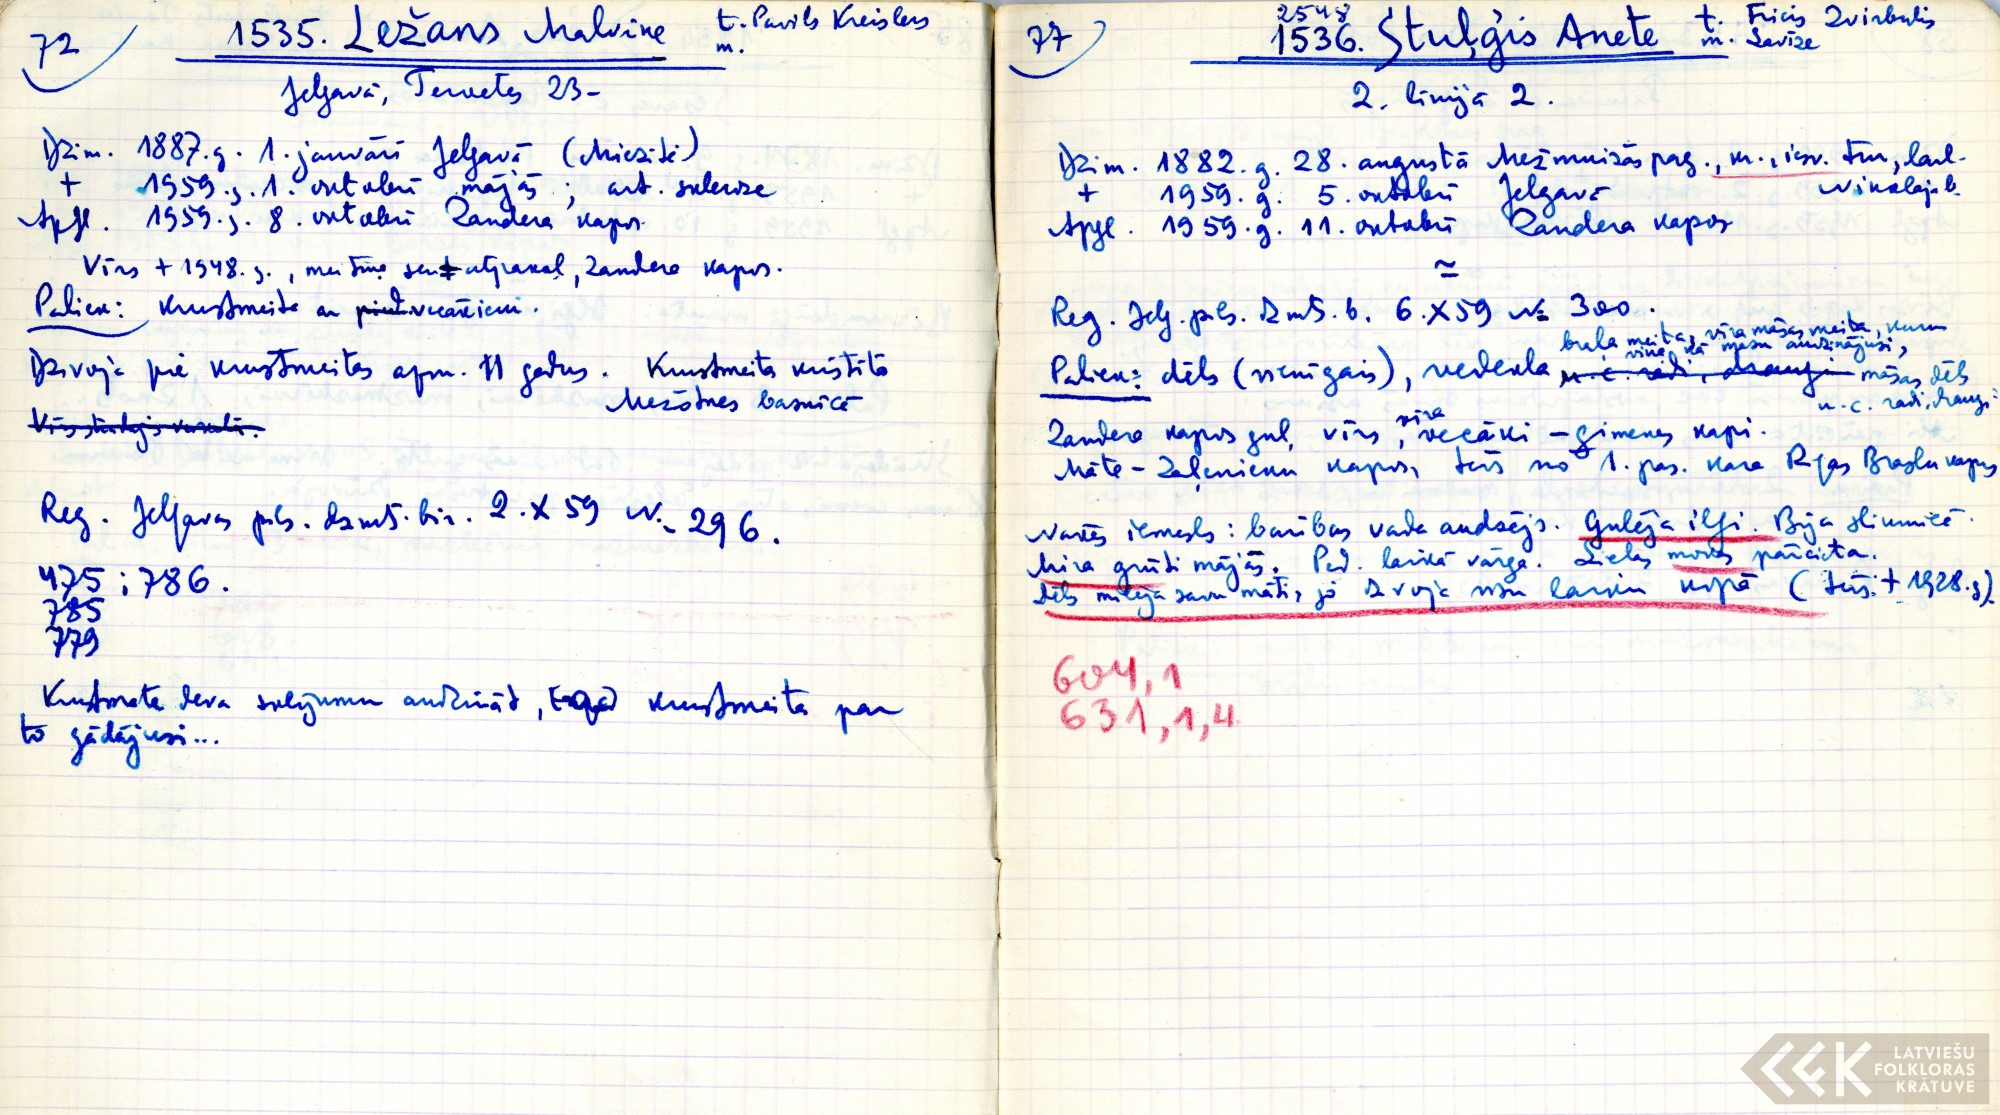 72
1535. Ležans Malvine t. Pavils Kreislers
m.
Jelgavā, Tervetes 23-
Dzim. 1887.g. 1. janvārī Jelgavā (Miezītē)
+ 1959.g. 1. oktobrī mājās; art. skleroze
Apgl. 1959.g. 8. oktobrī Zandera kapos.
Vīrs + 1948.g., meitiņa sen atpakaļ, Zandera kapos.
Paliek: Krustmeita ar vecākiem.
Dzīvoja pie krustmeitas apm. 11 gadus. Krustmeita kristīta
Mežotnes baznīcā
Reg. Jelgavas pils. dzmts. bir. 2. X 59 N. 296.
475 ; 786.
785
779
Krustmāte deva solījumu audzināt, tagad krustmeita par
to gādājusi...
77
2548
1536. Stuļģis Anete t. Fricis Zvirbulis
m. Lavīze
2. līnijā 2.
Dzim. 1882.g. 28. augustā Mežmuižas pag., kr., iesv. tur, laul.
Nikolaja b.
+ 1959.g. 5. oktobrī Jelgavā
Apgl. 1959.g. 11. oktobrī Zandera kapos
≃
Reg. Jelg. pils. dzmts. b. 6. X 59 № 300.
brāļa meita, vīra māsas meita, kuru
viņa kā māsu audzinājusi,
Paliek: dēls (vienīgais), vedekla u.c. radi, draugi māsas dēls
u.c. radi, draugi.
Zandera kapos guļ vīrs, vīra vecāki – ģimenes kapi.
Māte – Zaļenieku kapos, tēvs no 1. pas. kara Rīgas Brasla kapos
Nāves iemesls: barības vada audzējs. Gulēja ilgi. Bija slimnīcā.
Mira grūti mājās. Pēd. laikā vārga. Lielas mokas pārcieta.
Dēls mīlēja savu māti, jo dzīvoja visu laiku kopā (tēvs + 1928.g).
604,1
631,1,4.
LATVIEŠU
FOLKLORAS
KRĀTUVE